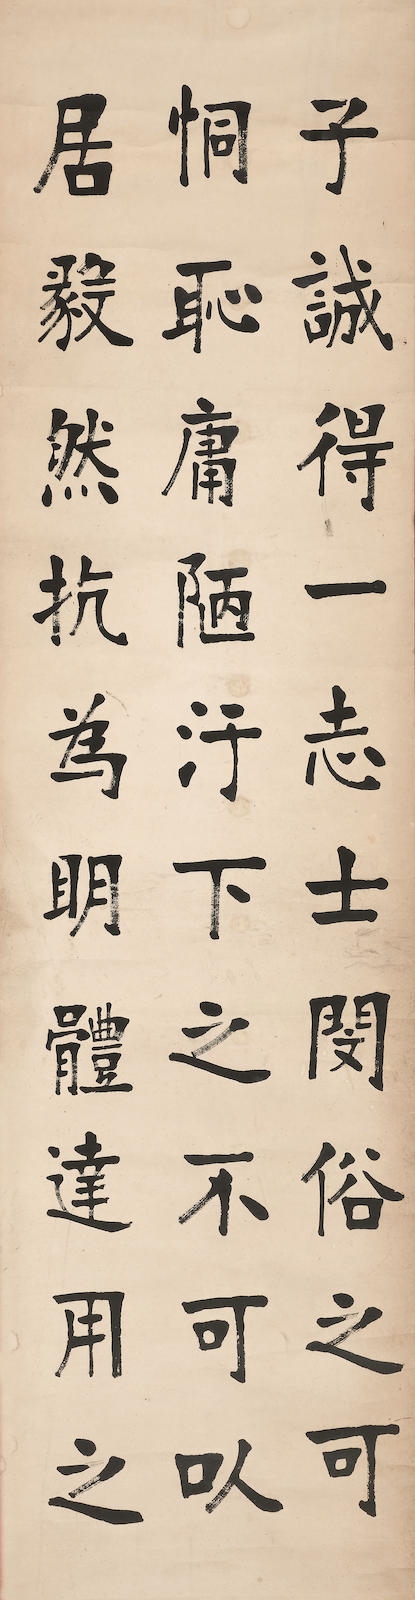 子誠得一志士閔俗之可
恫恥庸陋汙下之不可以
居毅然抗為明體達用之